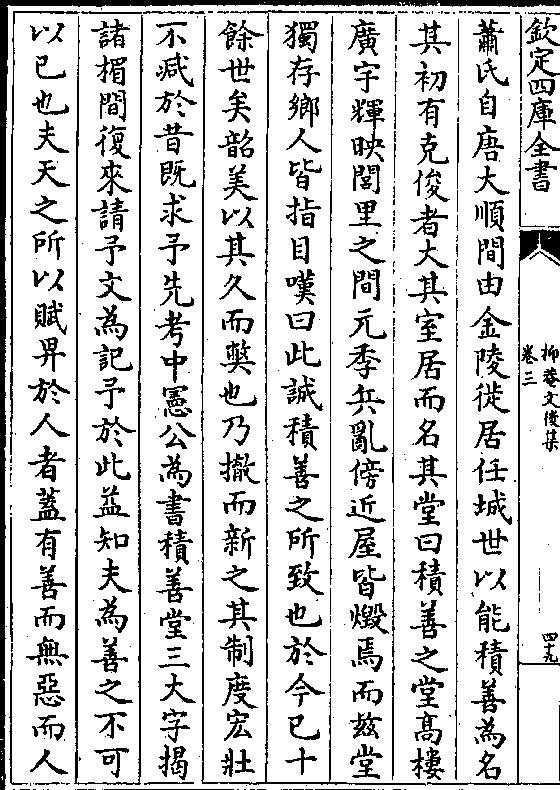 欽定四庫全書
抑菴文後集
卷三
四九
蕭氏自唐大順間由金陵徙居任城世以能積善為名
其初有克俊者大其室居而名其堂曰積善之堂髙樓
廣宇輝映閭里之間元季兵亂傍近屋皆燬焉而兹堂
獨存鄉人皆指目嘆曰此誠積善之所致也於今已十
餘世矣韶美以其久而弊也乃撤而新之其制度宏壯
不减於昔既求予先考中憲公為書積善堂三大字揭
諸楣間復來請予文為記予於此益知夫為善之不可
以已也夫天之所以賦畀於人者蓋有善而無惡而人